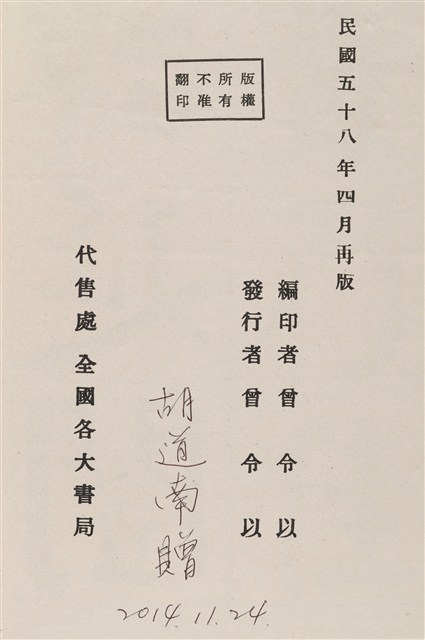 民國五十八年四月再版
版權
所有
不准
翻印
編印者曾令以
發行者曾令以
代售處 全國各大書局
胡道南贈
2014.11.24.